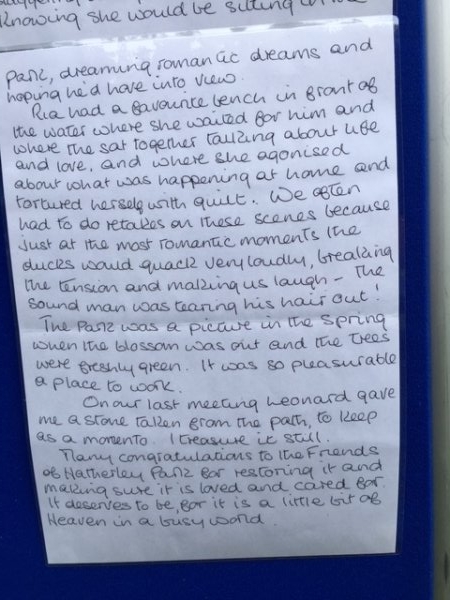 Knowing she would be sitting in the
park, dreaming romantic dreams and
hoping he'd have into view.
Ria had a favourite bench in front of
the water where she waited for him and
where the sat together talking about life
and love, and where she agonised
about what was happening at home and
tortured herself with guilt. We often
had to do retakes on these scenes because
just at the most romantic moments the
ducks would quack very loudly, breaking
the tension and making us laugh – the
sound man was tearing his hair out!
The Park was a picture in the Spring
when the blossom was out and the trees
were freshly green. It was so pleasurable
a place to work.
On our last meeting Leonard gave
me a stone taken from the path, to keep
as a momento. I treasure it still.
Many congratulations to the Friends
of Hatherley Park for restoring it and
making sure it is loved and cared for.
It deserves to be, for it is a little bit of
Heaven in a busy world.